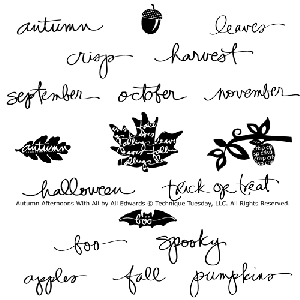 autumn leaves
crisp harvest
september october november
autumn
halloween trick or treat
Autumn Afternoons With Ali by Ali Edwards © Technique Tuesday, LLC. All Rights Reserved.
boo
boo spooky
apples fall pumpkins